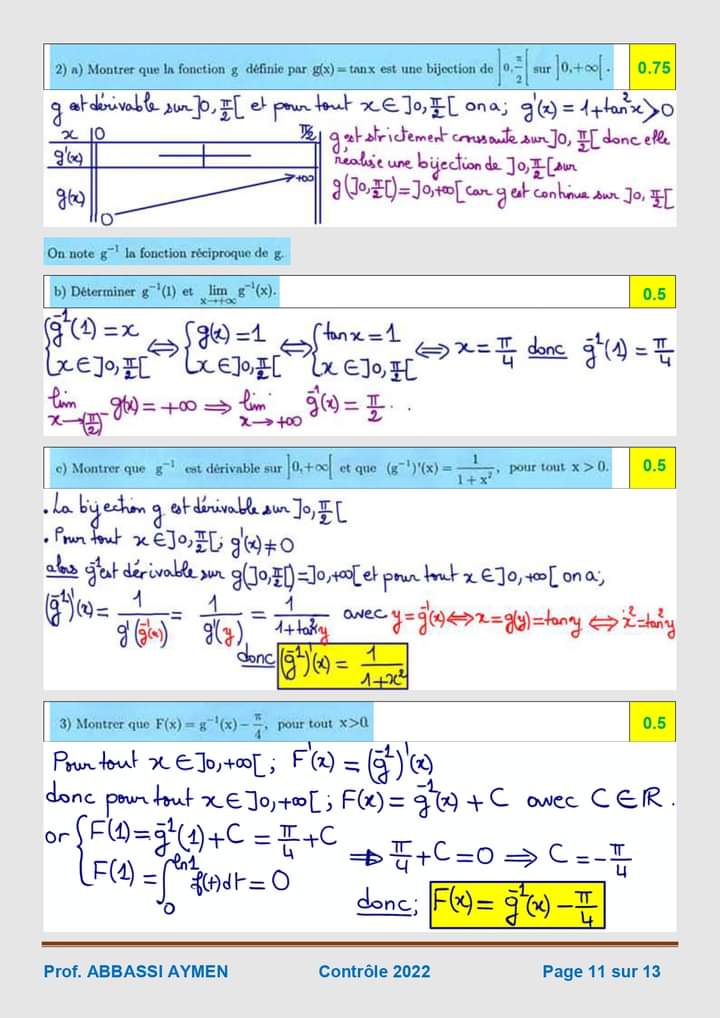 2) a) Montrer que la fonction g définie par g(x) = tan x est une bijection de ]0, π/2[ sur ]0,+∞[. 0.75
g est dérivable sur ]0, π/2[ et pour tout x ∈ ]0, π/2[ on a; g'(x) = 1+tan²x > 0
x 0 π/2
g'(x) +
g(x) 0 +∞
g est strictement croissante sur ]0, π/2[ donc elle
réalise une bijection de ]0, π/2[ sur
g(]0, π/2[) = ]0,+∞[ car g est continue sur ]0, π/2[
On note g⁻¹ la fonction réciproque de g.
b) Déterminer g⁻¹(1) et lim x→+∞ g⁻¹(x). 0.5
{g⁻¹(1) = x ; x ∈ ]0, π/2[ ⇔ {g(x) = 1 ; x ∈ ]0, π/2[ ⇔ {tan x = 1 ; x ∈ ]0, π/2[ ⇔ x = π/4 donc g⁻¹(1) = π/4
lim x→(π/2)⁻ g(x) = +∞ ⇒ lim x→+∞ g⁻¹(x) = π/2 .
c) Montrer que g⁻¹ est dérivable sur ]0,+∞[ et que (g⁻¹)'(x) = 1/(1+x²), pour tout x > 0. 0.5
. La bijection g est dérivable sur ]0, π/2[
. Pour tout x ∈ ]0, π/2[ ; g'(x) ≠ 0
alors g⁻¹ est dérivable sur g(]0, π/2[) = ]0,+∞[ et pour tout x ∈ ]0,+∞[ on a;
(g⁻¹)'(x) = 1/g'(g⁻¹(x)) = 1/g'(y) = 1/(1+tan²y) avec y = g⁻¹(x) ⇔ x = g(y) = tan y ⇔ x² = tan²y
donc (g⁻¹)'(x) = 1/(1+x²)
3) Montrer que F(x) = g⁻¹(x) − π/4, pour tout x>0. 0.5
Pour tout x ∈ ]0,+∞[ ; F'(x) = (g⁻¹)'(x)
donc pour tout x ∈ ]0,+∞[ ; F(x) = g⁻¹(x) + C avec C ∈ ℝ.
or {F(1) = g⁻¹(1) + C = π/4 + C
F(1) = ∫₀^ln1 f(t)dt = 0 ⇒ π/4 + C = 0 ⇒ C = −π/4
donc; F(x) = g⁻¹(x) − π/4
Prof. ABBASSI AYMEN Contrôle 2022 Page 11 sur 13